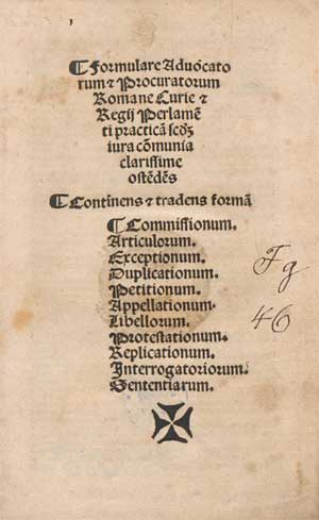 ¶ Formulare Aduocato
rum ⁊ Procuratorum
Romane Curie ⁊
Regij Perlamē
ti practicā scdꝫ
iura cōmunia
clarissime
ostēdēs
¶ Continens ⁊ tradens formā
¶ Commissionum.
Articulorum.
Exceptionum.
Duplicationum.
Petitionum.
Appellationum.
Libellorum.
Protestationum.
Replicationum.
Interrogatoriorum.
Sententiarum.
Fg
46